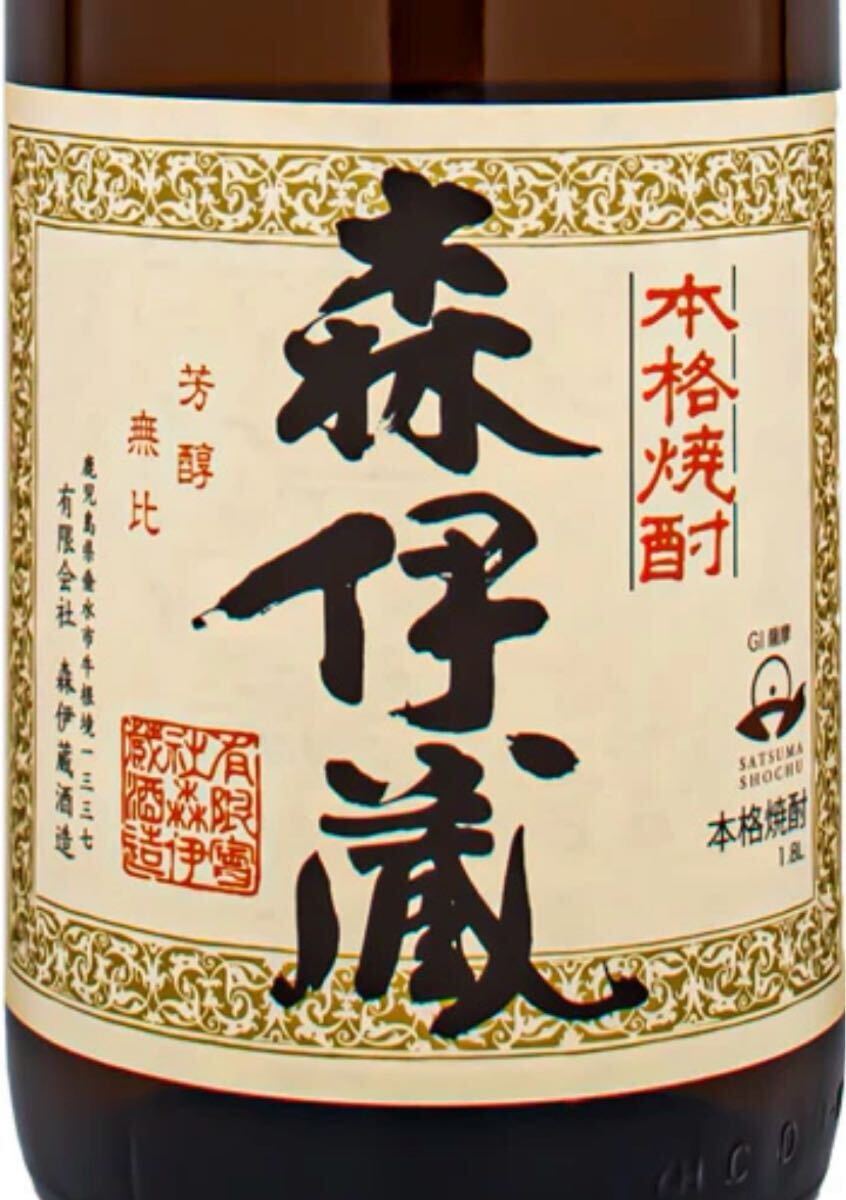 本格焼酎
GI 薩摩
SATSUMA
SHOCHU
本格焼酎
1.8L
森伊蔵
芳醇
無比
鹿児島県垂水市牛根境一三三七
有限会社 森伊蔵酒造
有限会
社森伊
蔵酒造